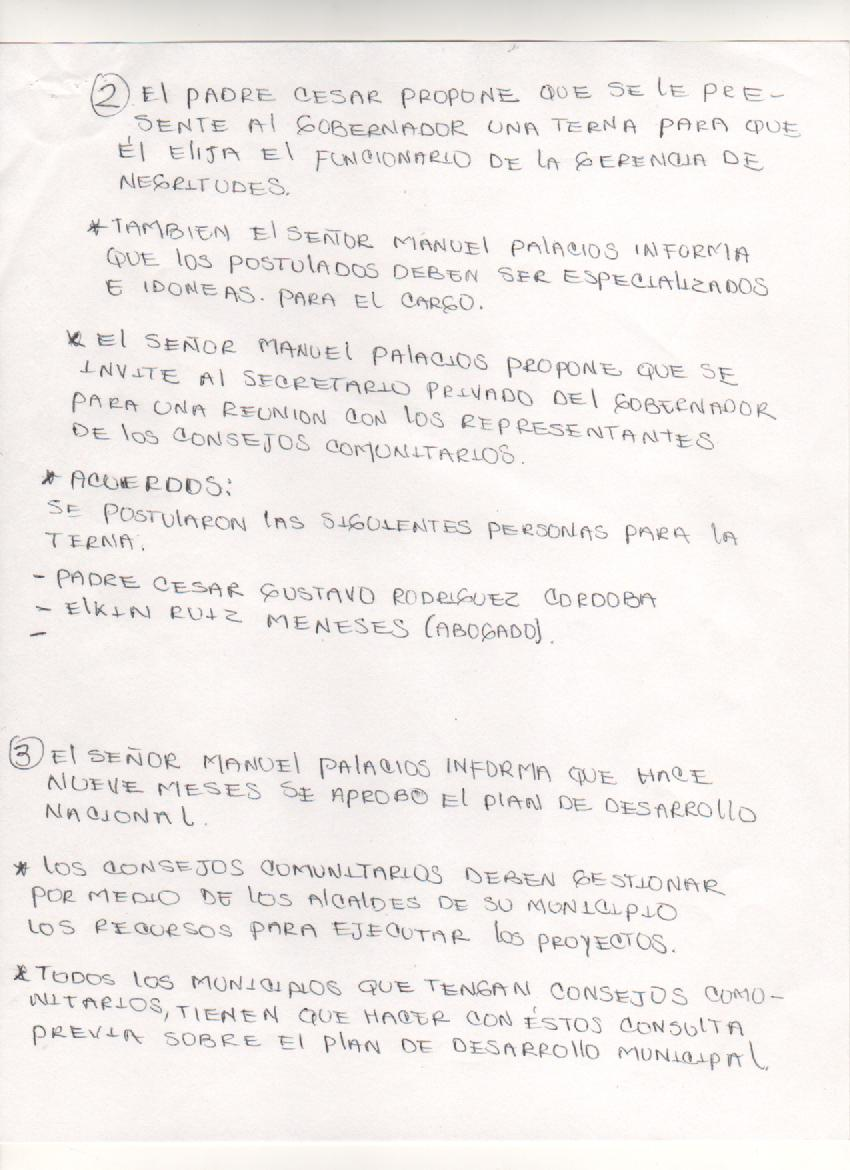 ② El PADRE CESAR PROPONE QUE SE lE PRE-
SENTE Al GOBERNADOR UNA TERNA PARA QUE
ÉL ElIJA El FUNCIONARIO DE lA GERENCIA DE
NEGRITUDES.
* TAMBIEN El SEÑOR MANUEl PAlACIOS INFORMA
QUE lOS POSTUlADOS DEBEN SER ESPECIAlIZADOS
E IDONEAS. PARA EL CARGO.
* El SEÑOR MANUEl PAlACIOS PROPONE QUE SE
INVITE Al SECRETARIO PRIVADO DEl GOBERNADOR
PARA UNA REUNION CON lOS REPRESENTANTES
DE lOS CONSEJOS COMUNITARIOS.
* ACUERDOS:
SE POSTULARON lAS SIGUIENTES PERSONAS PARA lA
TERNA.
- PADRE CESAR GUSTAVO RODRIGUEZ CORDOBA
- ElKIN RUIZ MENESES (ABOGADO).
-
③ El SEÑOR MANUEl PAlACIOS INFORMA QUE HACE
NUEVE MESES SE APROBO El PlAN DE DESARROllO
NACIONAL.
* lOS CONSEJOS COMUNITARIOS DEBEN GESTIONAR
POR MEDIO DE LOS AlCAlDES DE SU MUNICIPIO
LOS RECURSOS PARA EJECUTAR los PROYECTOS.
* TODOS lOS MUNICIPIOS QUE TENGAN CONSEJOS COMO-
NITARIOS, TIENEN QUE HACER CON ÉSTOS CONSUlTA
PREVIA SOBRE El PlAN DE DESARROllO MUNICIPAL.